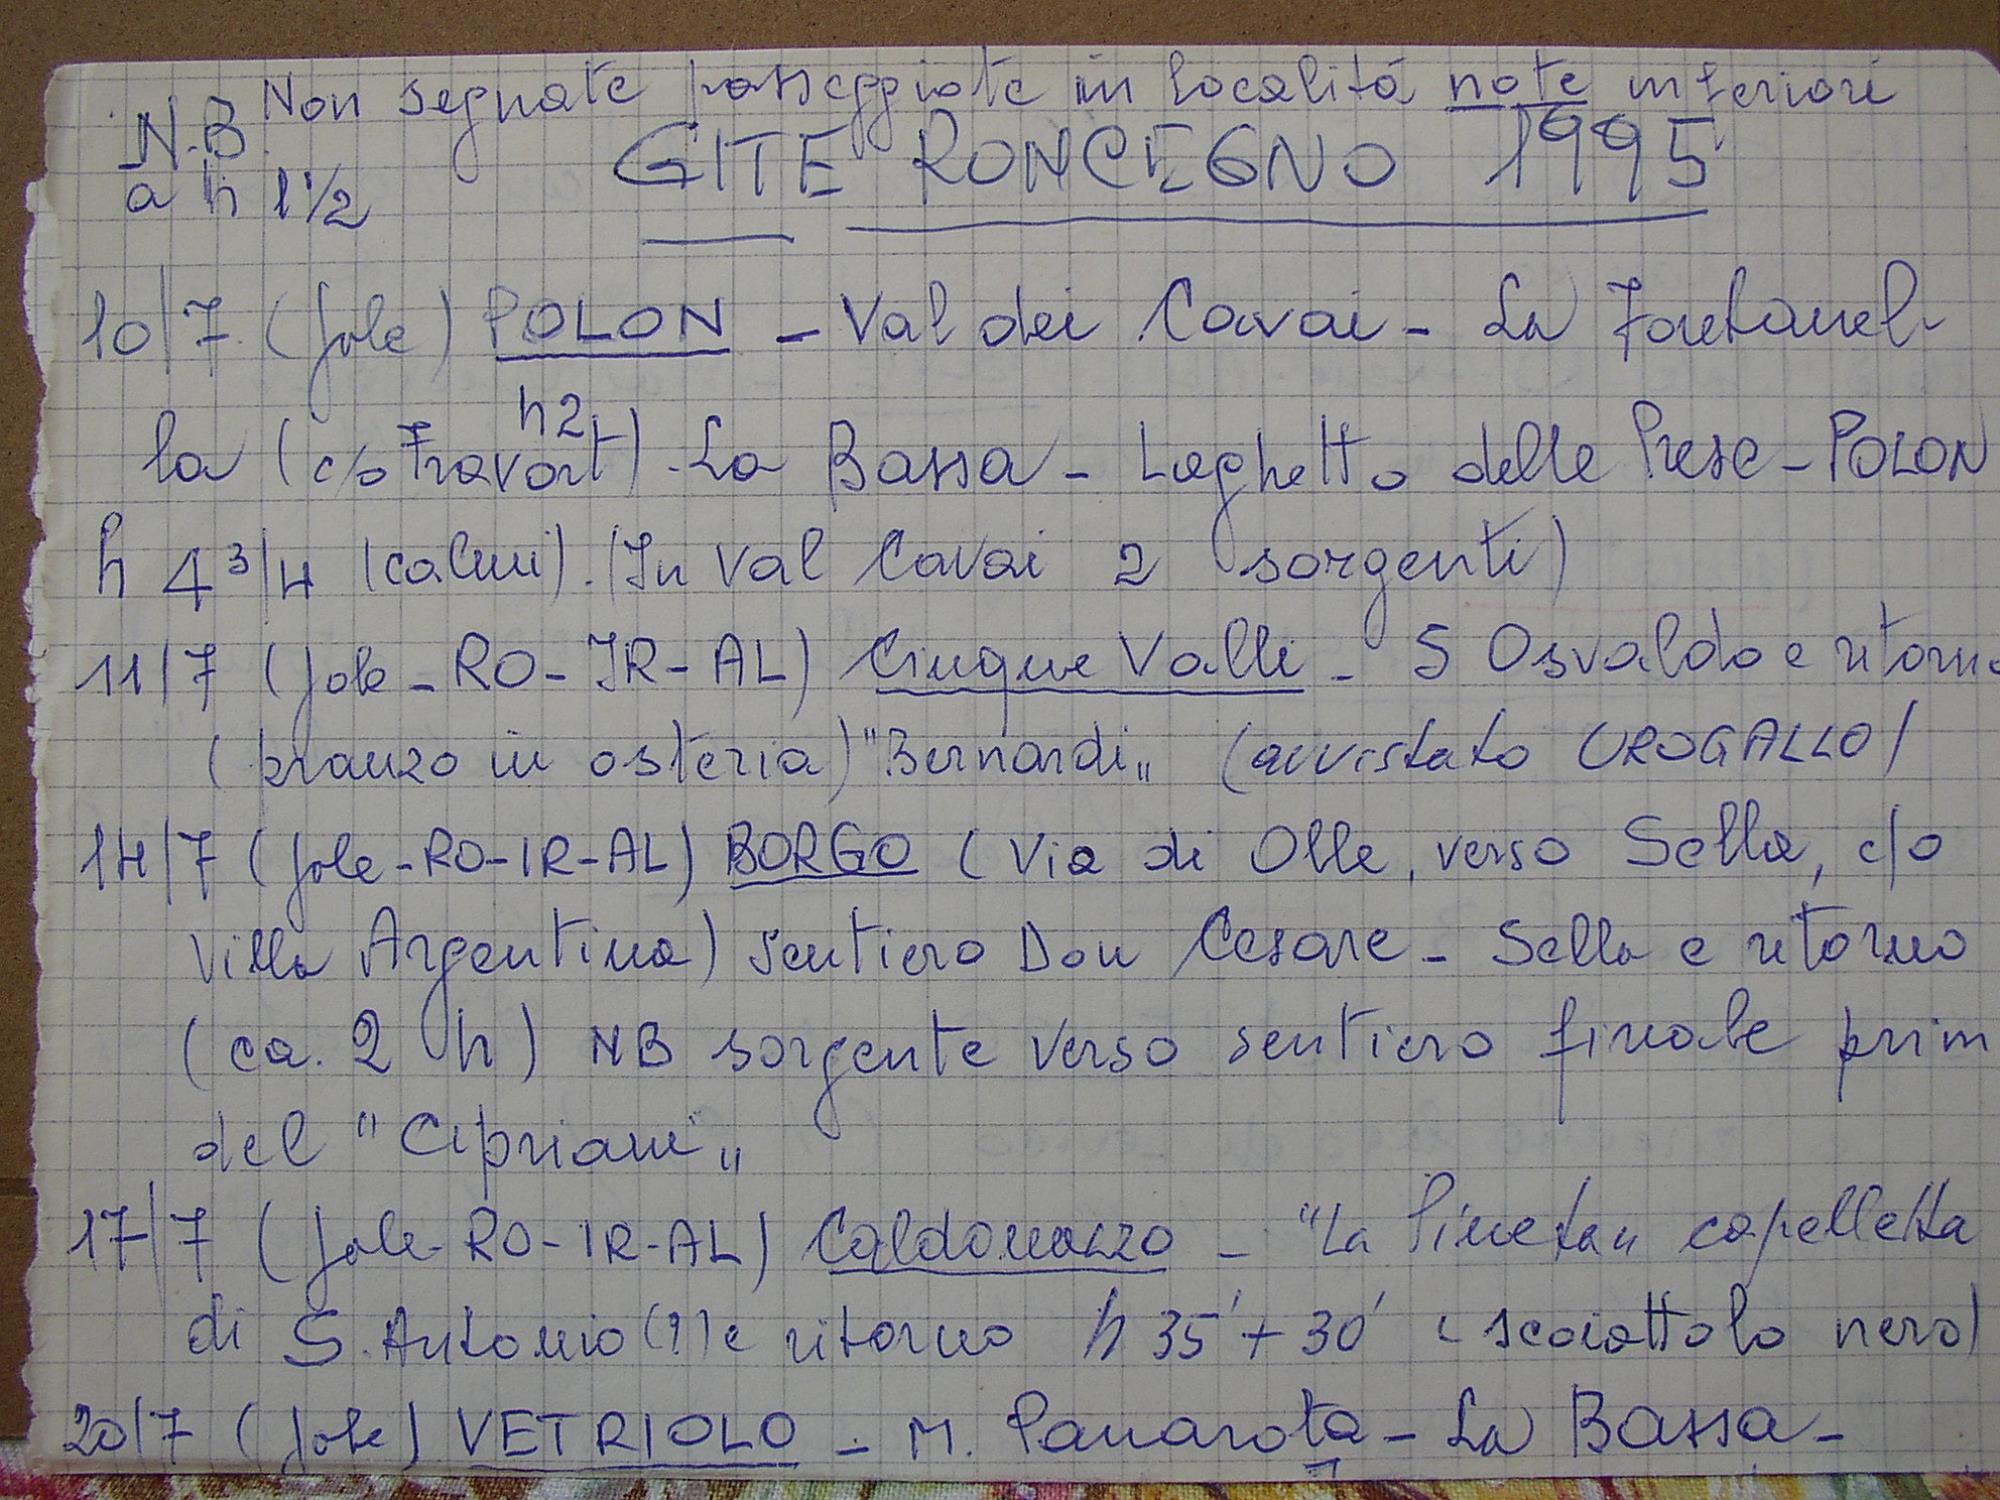 N.B. Non segnate passeggiate in località note inferiori
a h 1 1/2
GITE RONCEGNO 1995
10/7 (Jole) POLON - Val dei Cavai - La Fontanel-
h 2
la (c/o Fravort) - La Bassa - Laghetto delle Prese - POLON
h 4 3/4 (calmi). (In Val Cavai 2 sorgenti)
11/7 (Jole - RO - IR - AL) Cinque Valli - S Osvaldo e ritorno
(pranzo in osteria) "Bernardi" (avvistato UROGALLO)
14/7 (Jole - RO - IR - AL) BORGO (Via di Olle, verso Sella, c/o
Villa Argentina) sentiero Don Cesare - Sella e ritorno
(ca. 2 h) NB sorgente verso sentiero finale prim
del "Cipriani"
17/7 (Jole - RO - IR - AL) Caldonazzo - "La Pineta" capelletta
di S. Antonio (?) e ritorno h 35' + 30' (scoiattolo nero)
20/7 (Jole) VETRIOLO - M. Panarotta - La Bassa -